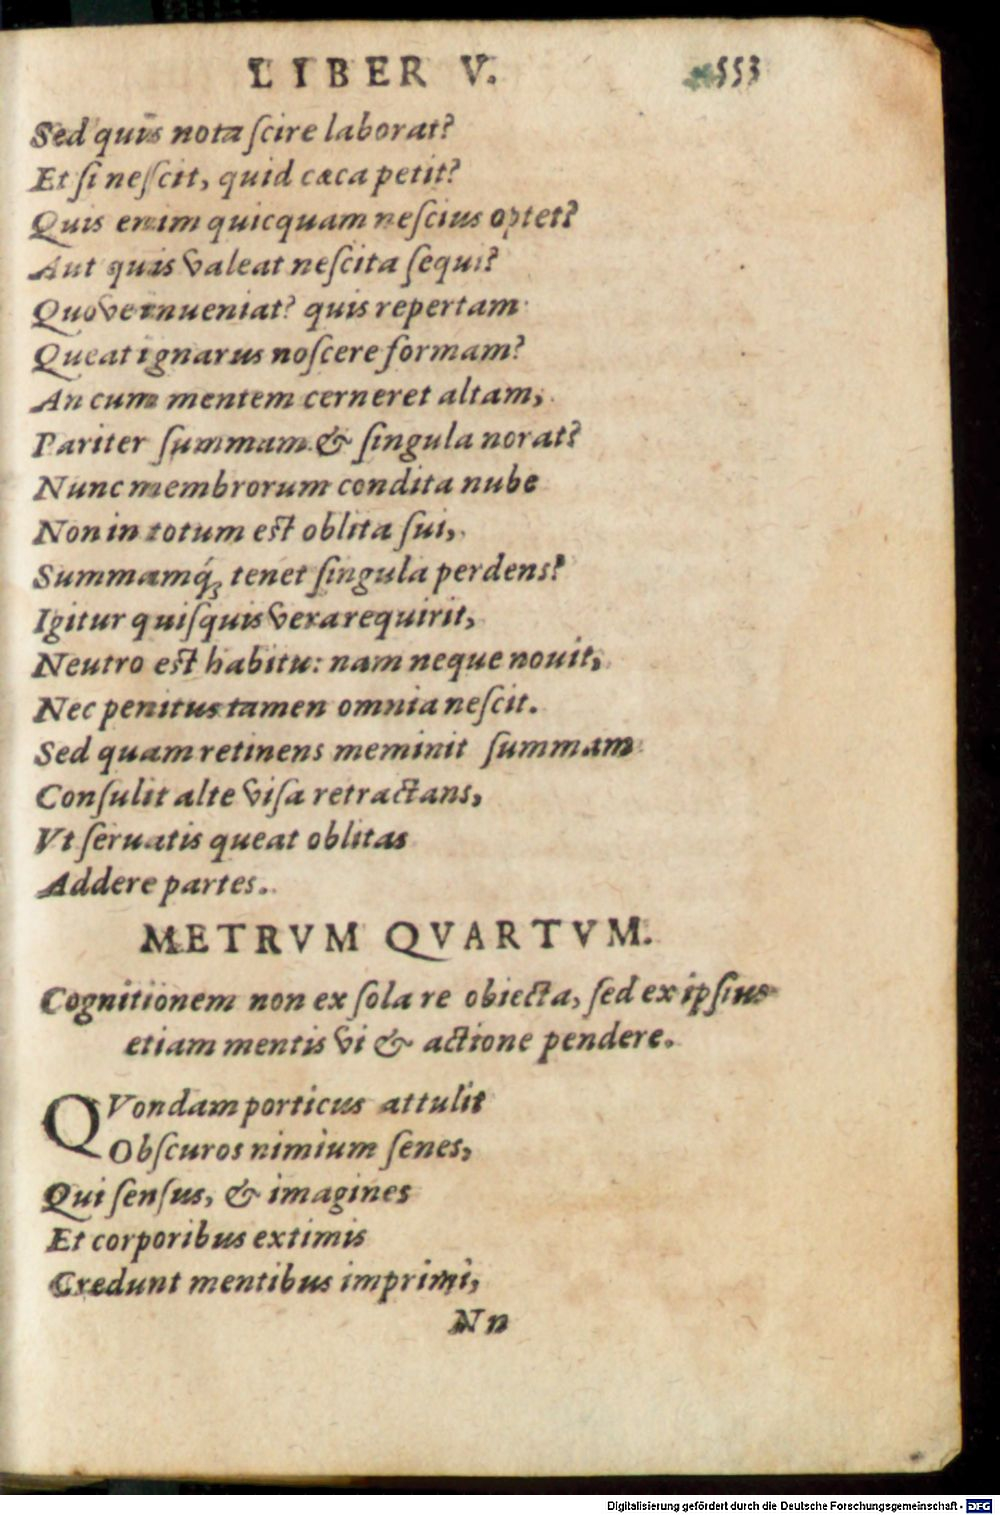 LIBER V. 553
Sed quis nota scire laborat?
Et si nescit, quid cæca petit?
Quis enim quicquam nescius optet?
Aut quis valeat nescita sequi?
Quove inueniat? quis repertam
Queat ignarus noscere formam?
An cum mentem cerneret altam,
Pariter summam & singula norat?
Nunc membrorum condita nube
Non in totum est oblita sui,
Summamq́; tenet singula perdens?
Igitur quisquis vera requirit,
Neutro est habitu: nam neque nouit,
Nec penitus tamen omnia nescit.
Sed quam retinens meminit summam
Consulit alte visa retractans,
Vt seruatis queat oblitas
Addere partes.
METRVM QVARTVM.
Cognitionem non ex sola re obiecta, sed ex ipsius
etiam mentis vi & actione pendere.
QVondam porticus attulit
Obscuros nimium senes,
Qui sensus, & imagines
Et corporibus extimis
Credunt mentibus imprimi,
Nn
Digitalisierung gefördert durch die Deutsche Forschungsgemeinschaft - DFG